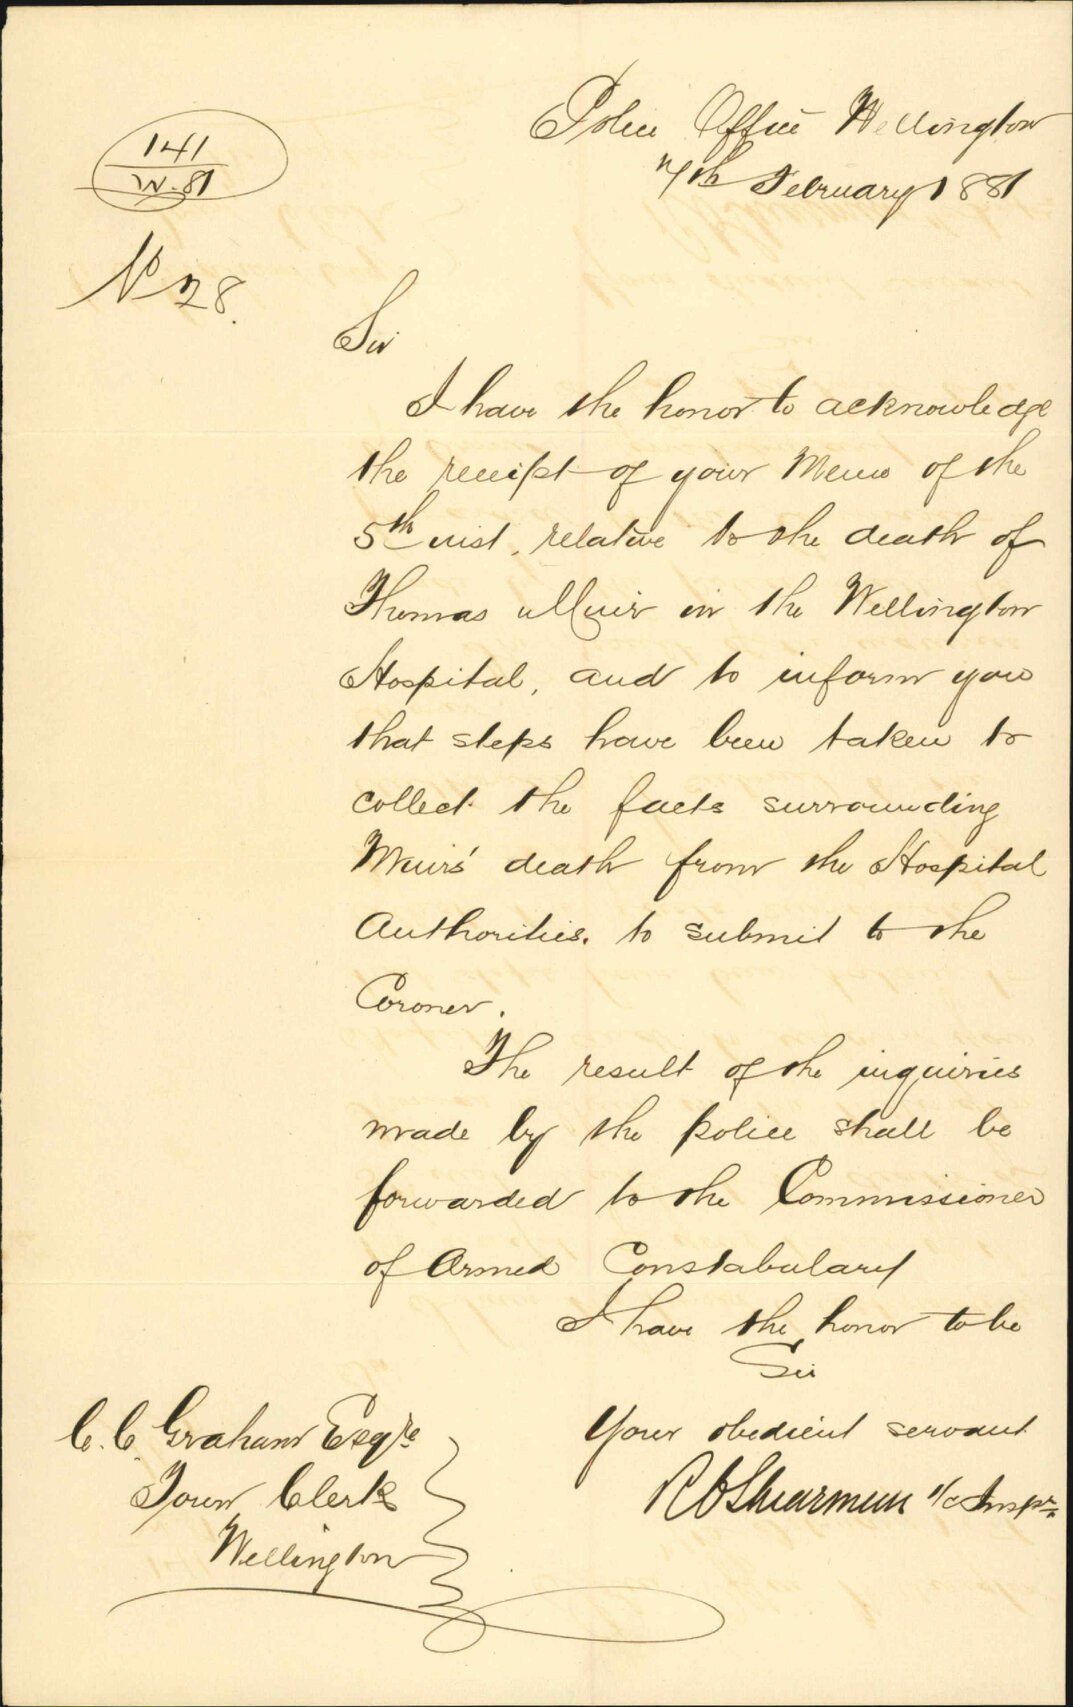 Police Office Wellington
7th February 1881
141
W.81
No 28.
Sir
I have the honor to acknowledge
the receipt of your Memo of the
5th inst. relative to the death of
Thomas Muir in the Wellington
Hospital, and to inform you
that steps have been taken to
collect the facts surrounding
Muirs' death from the Hospital
Authorities. to submit to the
Coroner.
The result of the inquiries
made by the police shall be
forwarded to the Commissioner
of Armed Constabulary
I have the honor to be
Sir
Your obedient servant
R Shearman I/c Inspr
C. C. Graham Esqre
Town Clerk
Wellington